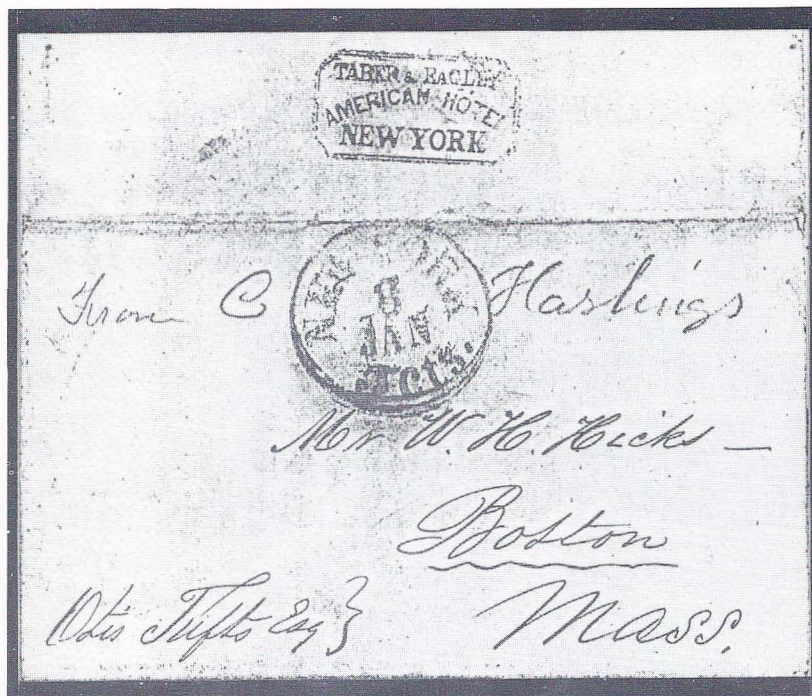 TABER & BAGLEY
AMERICAN HOTEL
NEW YORK
NEW YORK
JAN
cts.
From C Hastings
Mr W. H. Hicks —
Boston
Mass.
Otis Tufts Esq }